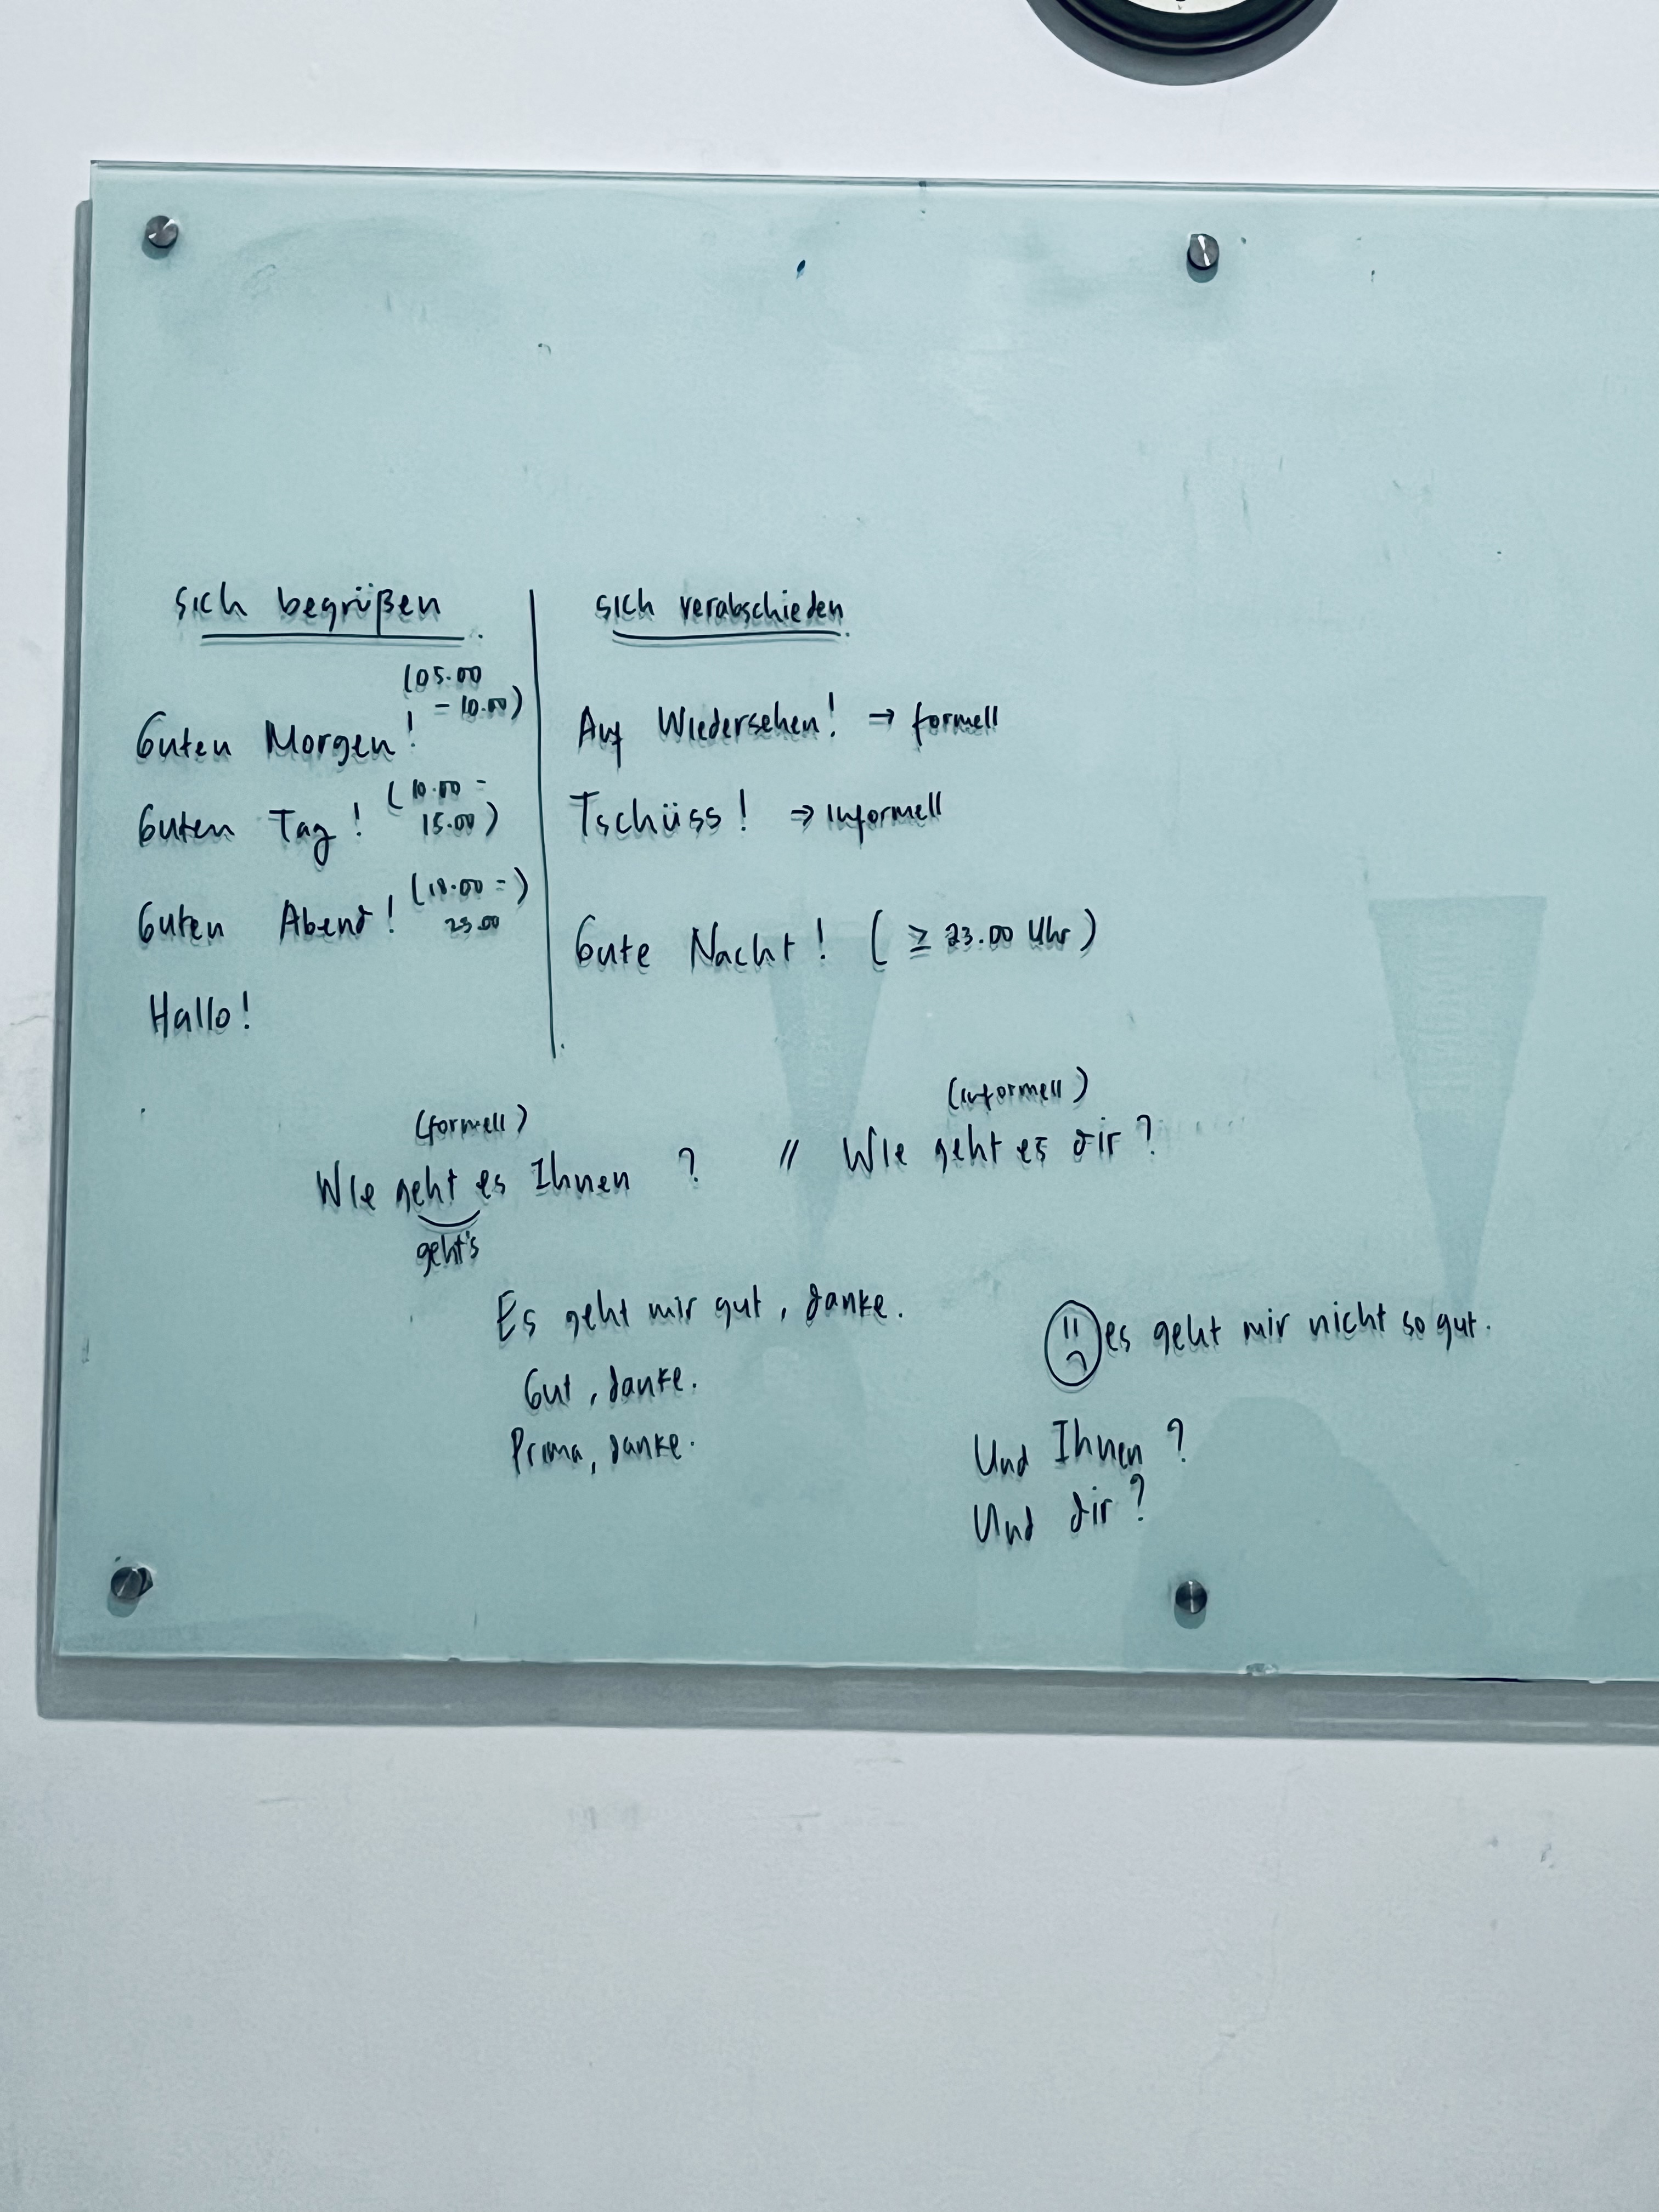 sich begrüßen
(05.00
- 10.00)
Guten Morgen!
Guten Tag! (10.00 -
15.00)
Guten Abend! (18.00 - )
23.00
Hallo!
sich verabschieden
Auf Wiedersehen! → formell
Tschüss! → informell
Gute Nacht! ( ≥ 23.00 Uhr)
(formell)
Wie geht es Ihnen ?
geht's
(informell)
// Wie geht es dir ?
Es geht mir gut, danke.
Gut, danke.
Prima, danke.
es geht mir nicht so gut.
Und Ihnen ?
Und dir ?